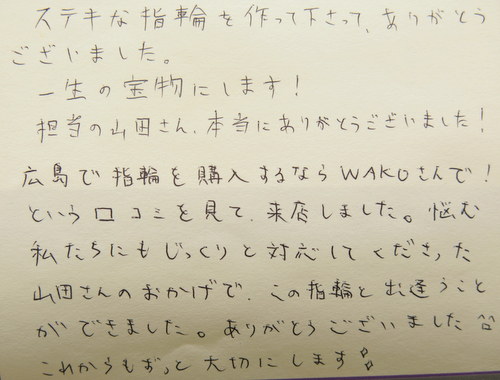 ステキな指輪を作って下さって、ありがとう
ございました。
一生の宝物にします！
担当の山田さん、本当にありがとうございました！
広島で指輪を購入するならWAKOさんで！
という口コミを見て、来店しました。悩む
私たちにもじっくりと対応してくださった
山田さんのおかげで、この指輪と出逢うこと
ができました。ありがとうございました^^
これからもずっと大切にします